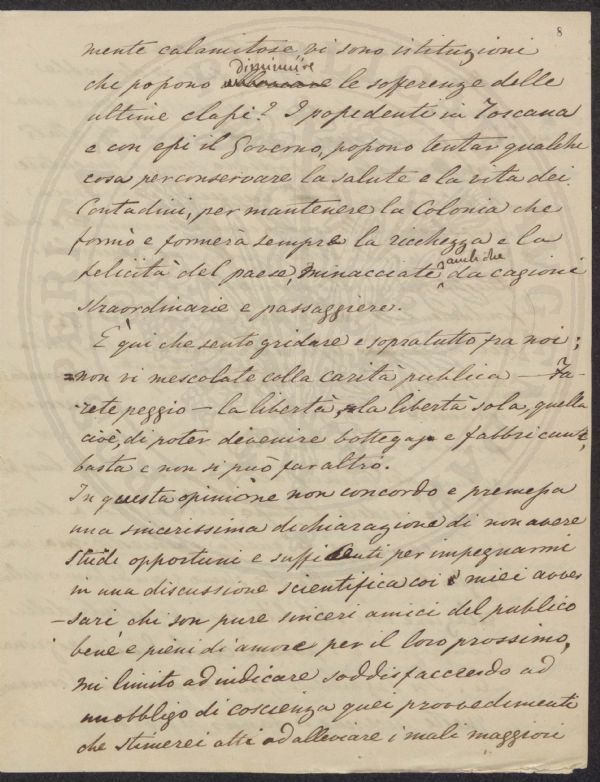 8
mente calamitose vi sono istituzioni
che possono diminuire le sofferenze delle
ultime classi? I possedenti in Toscana
e con essi il Governo, possono tentar qualche
cosa per conservare la salute e la vita dei
Contadini, per mantenere la Colonia che
formò e formerà sempre la ricchezza e la
felicità del paese, minacciate da cagioni
straordinarie e passaggiere.
E qui che sento gridare e sopratutto fra noi;
=non vi mescolate colla carità publica — Fa-
rete peggio — la libertà, =la libertà sola, quella
cioè, di poter divenire bottegajo e fabbricante,
basta e non si può far altro.
In questa opinione non concordo e premessa
una sincerissima dichiarazione di non avere
studi opportuni e sufficienti per impegnarmi
in una discussione scientifica coi miei avver
-sari chi son pure sinceri amici del publico
bene e pieni di amore per il loro prossimo,
mi limito ad indicare soddisfaccendo ad
un obbligo di coscienza quei provvedimenti
che stimerei atti ad alleviare i mali maggiori